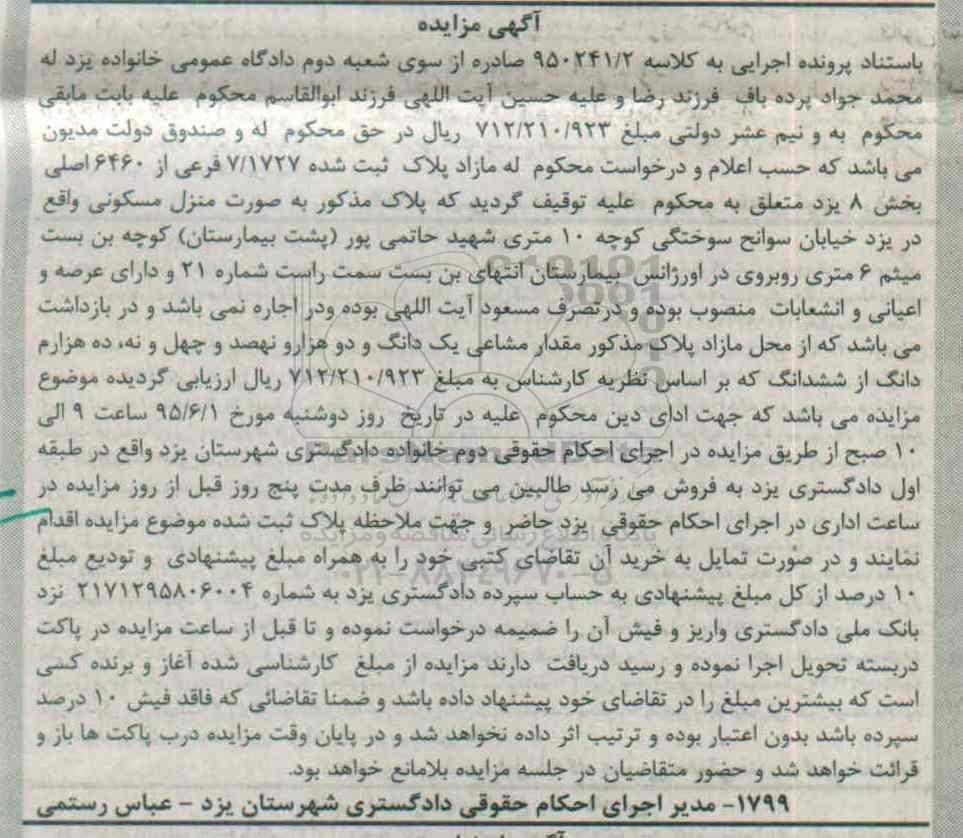 آگهی مزایده
باستناد پرونده اجرایی به کلاسه ۹۵۰۲۴۱/۲ صادره از سوی شعبه دوم دادگاه عمومی خانواده یزد له
محمد جواد پرده باف فرزند رضا و علیه حسین آیت اللهی فرزند ابوالقاسم محکوم علیه بابت مابقی
محکوم به و نیم عشر دولتی مبلغ ۷۱۲/۲۱۰/۹۲۳ ریال در حق محکوم له و صندوق دولت مدیون
می باشد که حسب اعلام و درخواست محکوم له مازاد پلاک ثبت شده ۷/۱۷۲۷ فرعی از ۶۴۶۰ اصلی
بخش ۸ یزد متعلق به محکوم علیه توقیف گردید که پلاک مذکور به صورت منزل مسکونی واقع
در یزد خیابان سوانح سوختگی کوچه ۱۰ متری شهید حاتمی پور (پشت بیمارستان) کوچه بن بست
میثم ۶ متری روبروی در اورژانس بیمارستان انتهای بن بست سمت راست شماره ۲۱ و دارای عرصه و
اعیانی و انشعابات منصوب بوده و درتصرف مسعود آیت اللهی بوده ودر اجاره نمی باشد و در بازداشت
می باشد که از محل مازاد پلاک مذکور مقدار مشاعی یک دانگ و دو هزارو نهصد و چهل و نه، ده هزارم
دانگ از ششدانگ که بر اساس نظریه کارشناس به مبلغ ۷۱۲/۲۱۰/۹۲۳ ریال ارزیابی گردیده موضوع
مزایده می باشد که جهت ادای دین محکوم علیه در تاریخ روز دوشنبه مورخ ۹۵/۶/۱ ساعت ۹ الی
۱۰ صبح از طریق مزایده در اجرای احکام حقوقی دوم خانواده دادگستری شهرستان یزد واقع در طبقه
اول دادگستری یزد به فروش می رسد طالبین می توانند ظرف مدت پنج روز قبل از روز مزایده در
ساعت اداری در اجرای احکام حقوقی یزد حاضر و جهت ملاحظه پلاک ثبت شده موضوع مزایده اقدام
نمایند و در صورت تمایل به خرید آن تقاضای کتبی خود را به همراه مبلغ پیشنهادی و تودیع مبلغ
۱۰ درصد از کل مبلغ پیشنهادی به حساب سپرده دادگستری یزد به شماره ۲۱۷۱۲۹۵۸۰۶۰۰۴ نزد
بانک ملی دادگستری واریز و فیش آن را ضمیمه درخواست نموده و تا قبل از ساعت مزایده در پاکت
دربسته تحویل اجرا نموده و رسید دریافت دارند مزایده از مبلغ کارشناسی شده آغاز و برنده کسی
است که بیشترین مبلغ را در تقاضای خود پیشنهاد داده باشد و ضمنا تقاضائی که فاقد فیش ۱۰ درصد
سپرده باشد بدون اعتبار بوده و ترتیب اثر داده نخواهد شد و در پایان وقت مزایده درب پاکت ها باز و
قرائت خواهد شد و حضور متقاضیان در جلسه مزایده بلامانع خواهد بود.
۱۷۹۹- مدیر اجرای احکام حقوقی دادگستری شهرستان یزد - عباس رستمی
پایگاه اطلاع رسانی مناقصه و مزایده
۰۲۱-۸۸۳۴۹۶۷۰-۵